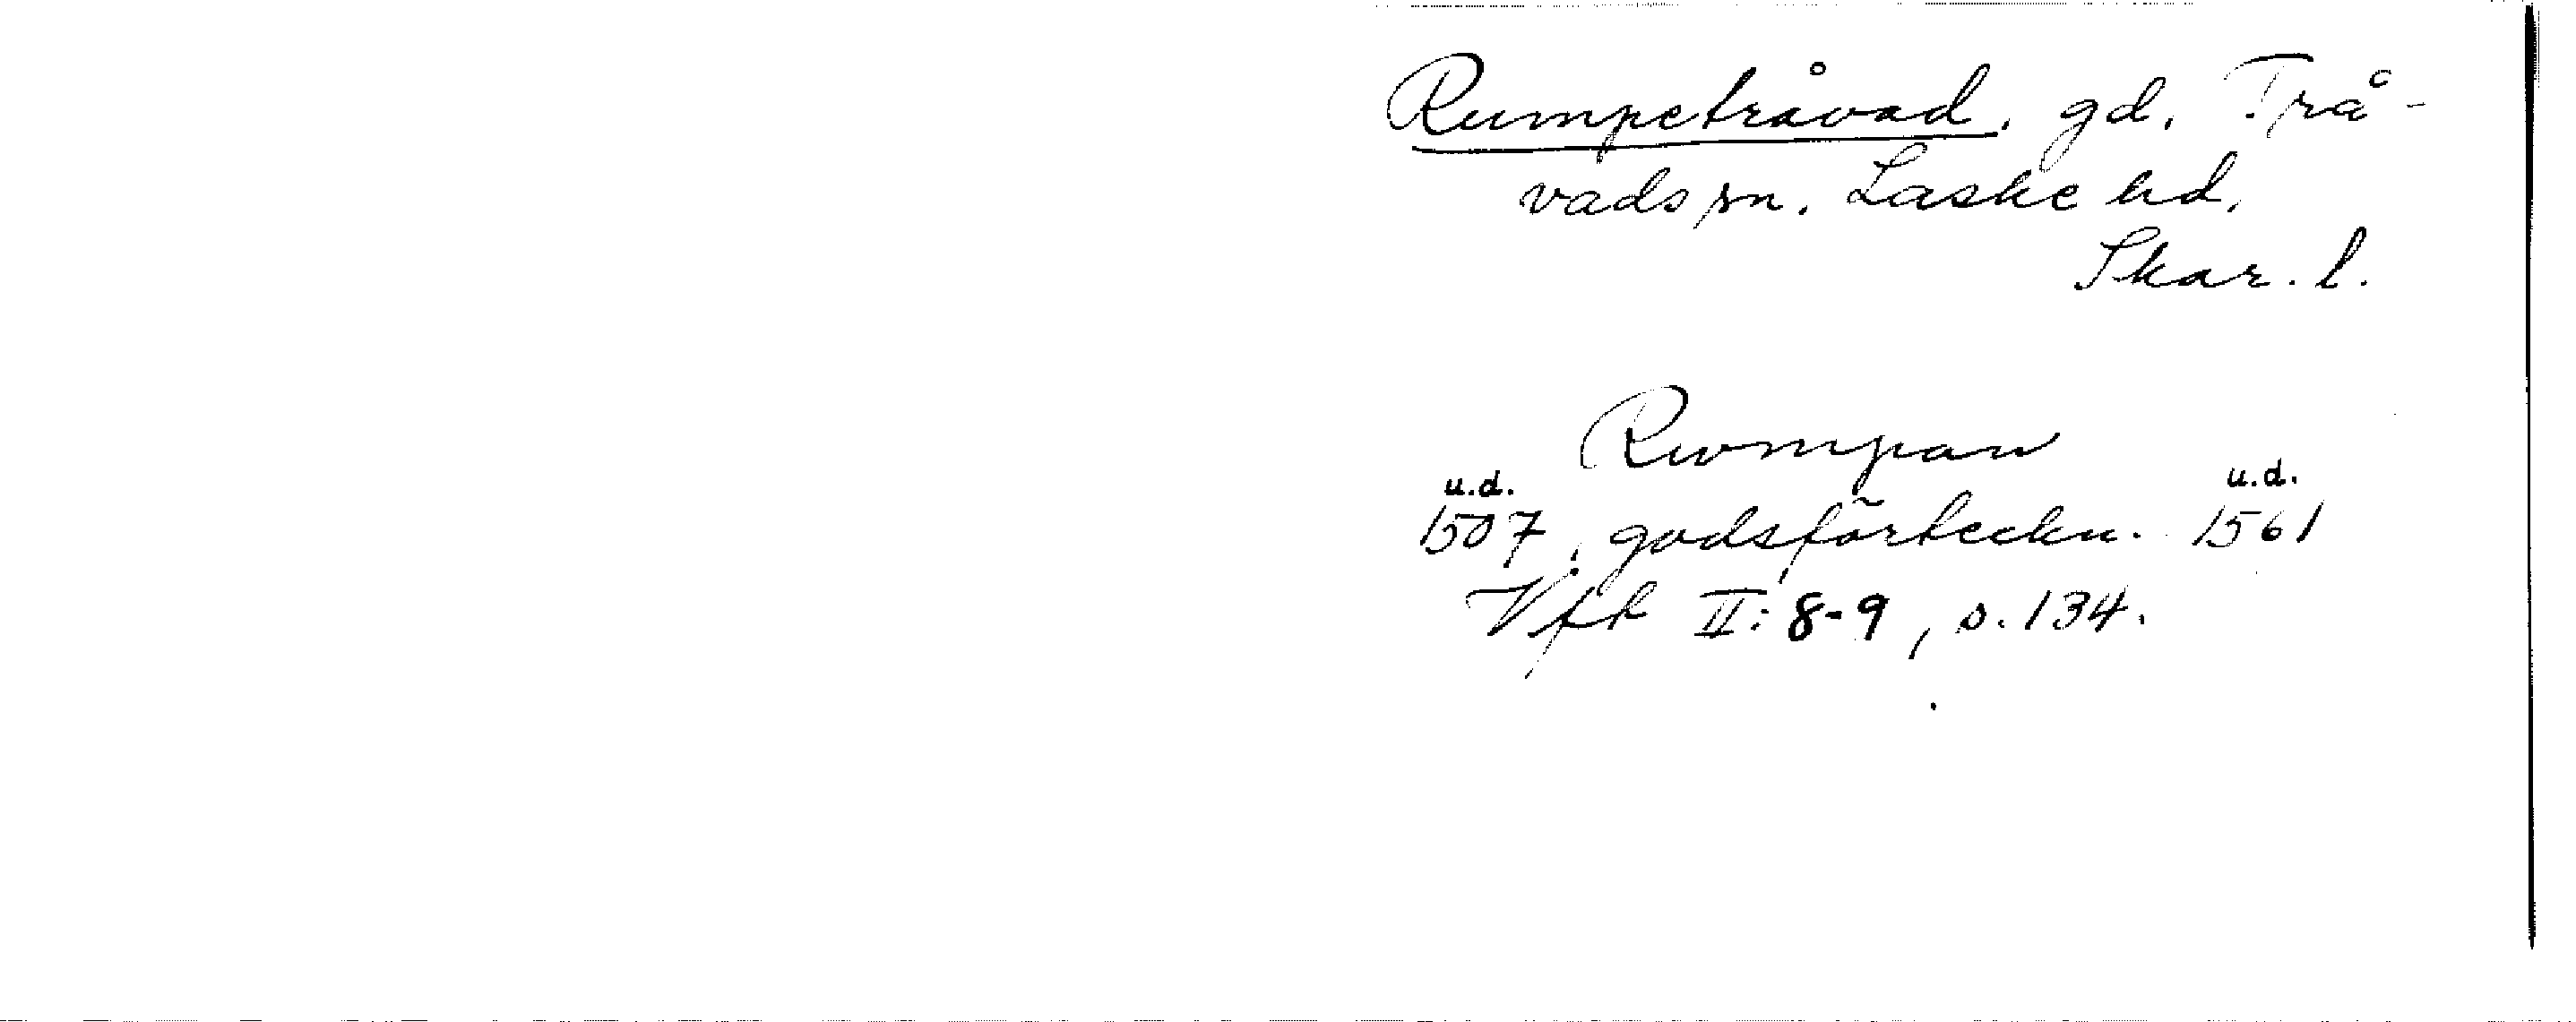 Rumpetråvad. gd. Trå-
vads sn. Laske hd.
Skar. l.
Rwmpan
u.d. u.d.
1507, godsförteckn. 1561
Vfk II: 8-9, s. 134.